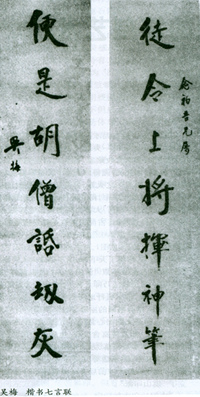 徒令上將揮神筆
便是胡僧話劫灰
吳梅
吴梅　楷书七言联